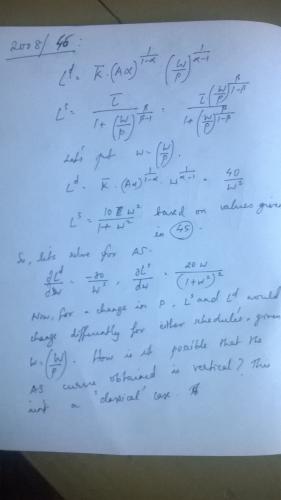 2008/45:
L^d = K̅·(Aα)^{1/(1-α)} (W/P)^{1/(α-1)}
L^s = L̅ / (1 + (W/P)^{β/(β-1)}) = L̅ (W/P)^{β/(1-β)} / (1 + (W/P)^{β/(1-β)})
Let's put w = (W/P).
L^d = K̅·(Aα)^{1/(1-α)} · w^{1/(α-1)} = 40/w²
L^s = 10 w² / (1 + w²) based on values given
in (45).
So, let's solve for AS.
∂L^d/∂w = -80/w³, ∂L^s/∂w = 20w/(1+w²)²
Now, for a change in P, L^s and L^d would
change differently for either schedule, given
w = (W/P). How is it possible that the
AS curve obtained is vertical? This
isnt a 'classical' case.